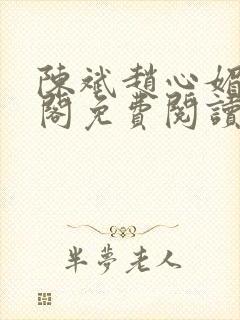 陳斌趙心媚
閣免費閱讀
半夢老人